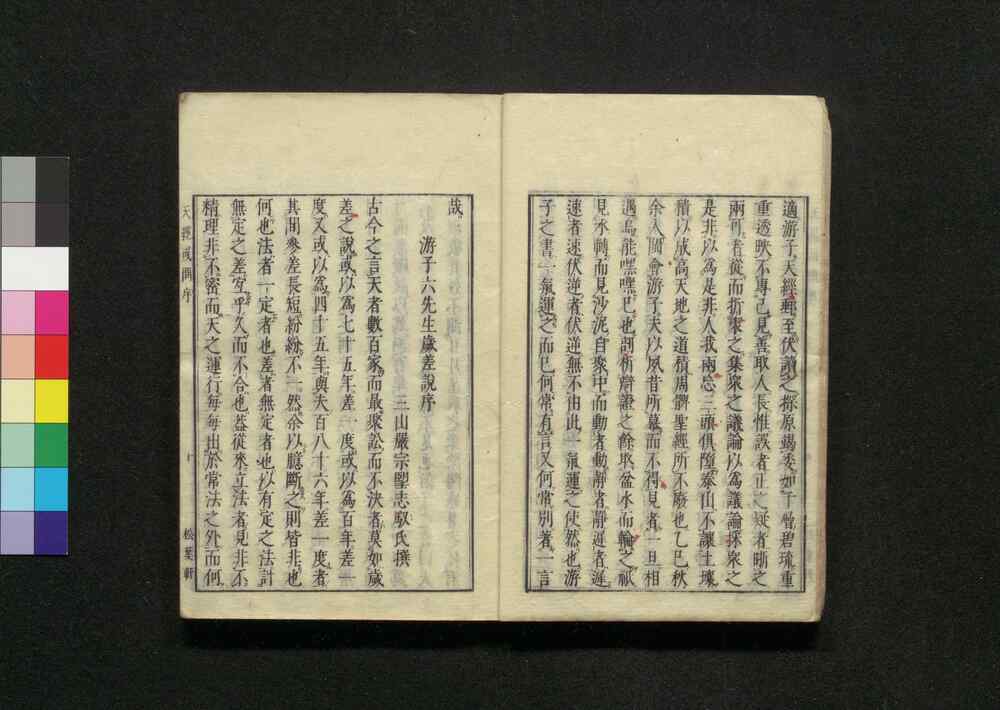 適游子天經郵至伏讀之探原竭委如千層碧琉重
重透映不專己見善取人長惟誤者正之疑者晰之
兩可者從而折衆之集衆之議論以爲議論採衆之
是非以爲是非人我兩忘三頭俱隨泰山不讓土壤
積以成高天地之道積周髀聖經所不廢也乙巳秋
余入閩會游子夫以夙昔所慕而不得見者一旦相
遇焉能嘿嘿已也剖析辯證之餘取盆水而輪之祇
見水轉而見沙泥自聚中而動者動靜者靜遲者遲
速者速伏逆者伏逆無不由此一氣運之使然也游
子之書一氣運之而已何常有言又何常別著一言
哉
游子六先生歲差說序
三山嚴宗閣志馭氏撰
古今之言天者數百家而最聚訟而不決者莫如歲
差之說或以爲七十五年差一度或以爲百年差一
度又或以爲四十五年與夫百八十六年差一度者
其間參差長短紛紛不一然余以臆斷之則皆非也
何也法者一定者也差者無定者也以有定之法計
無定之差宜乎久而不合也葢從來立法者見非不
精理非不密而天之運行每每出於常法之外而何
天經或問序 十 松葉軒